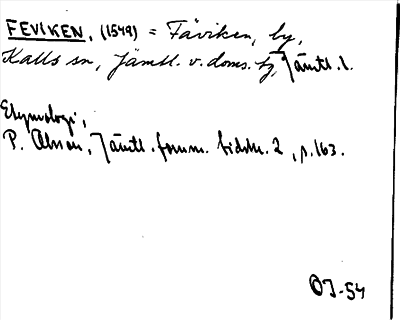 FEVIKEN, (1549) = Fäviken, by,
Kalls sn, Jämtl. v. doms. tg, Jämtl. l.
Etymologi,
P. Olsson, Jämtl. fornm. tidskr. 2, s. 163.
OJ-54